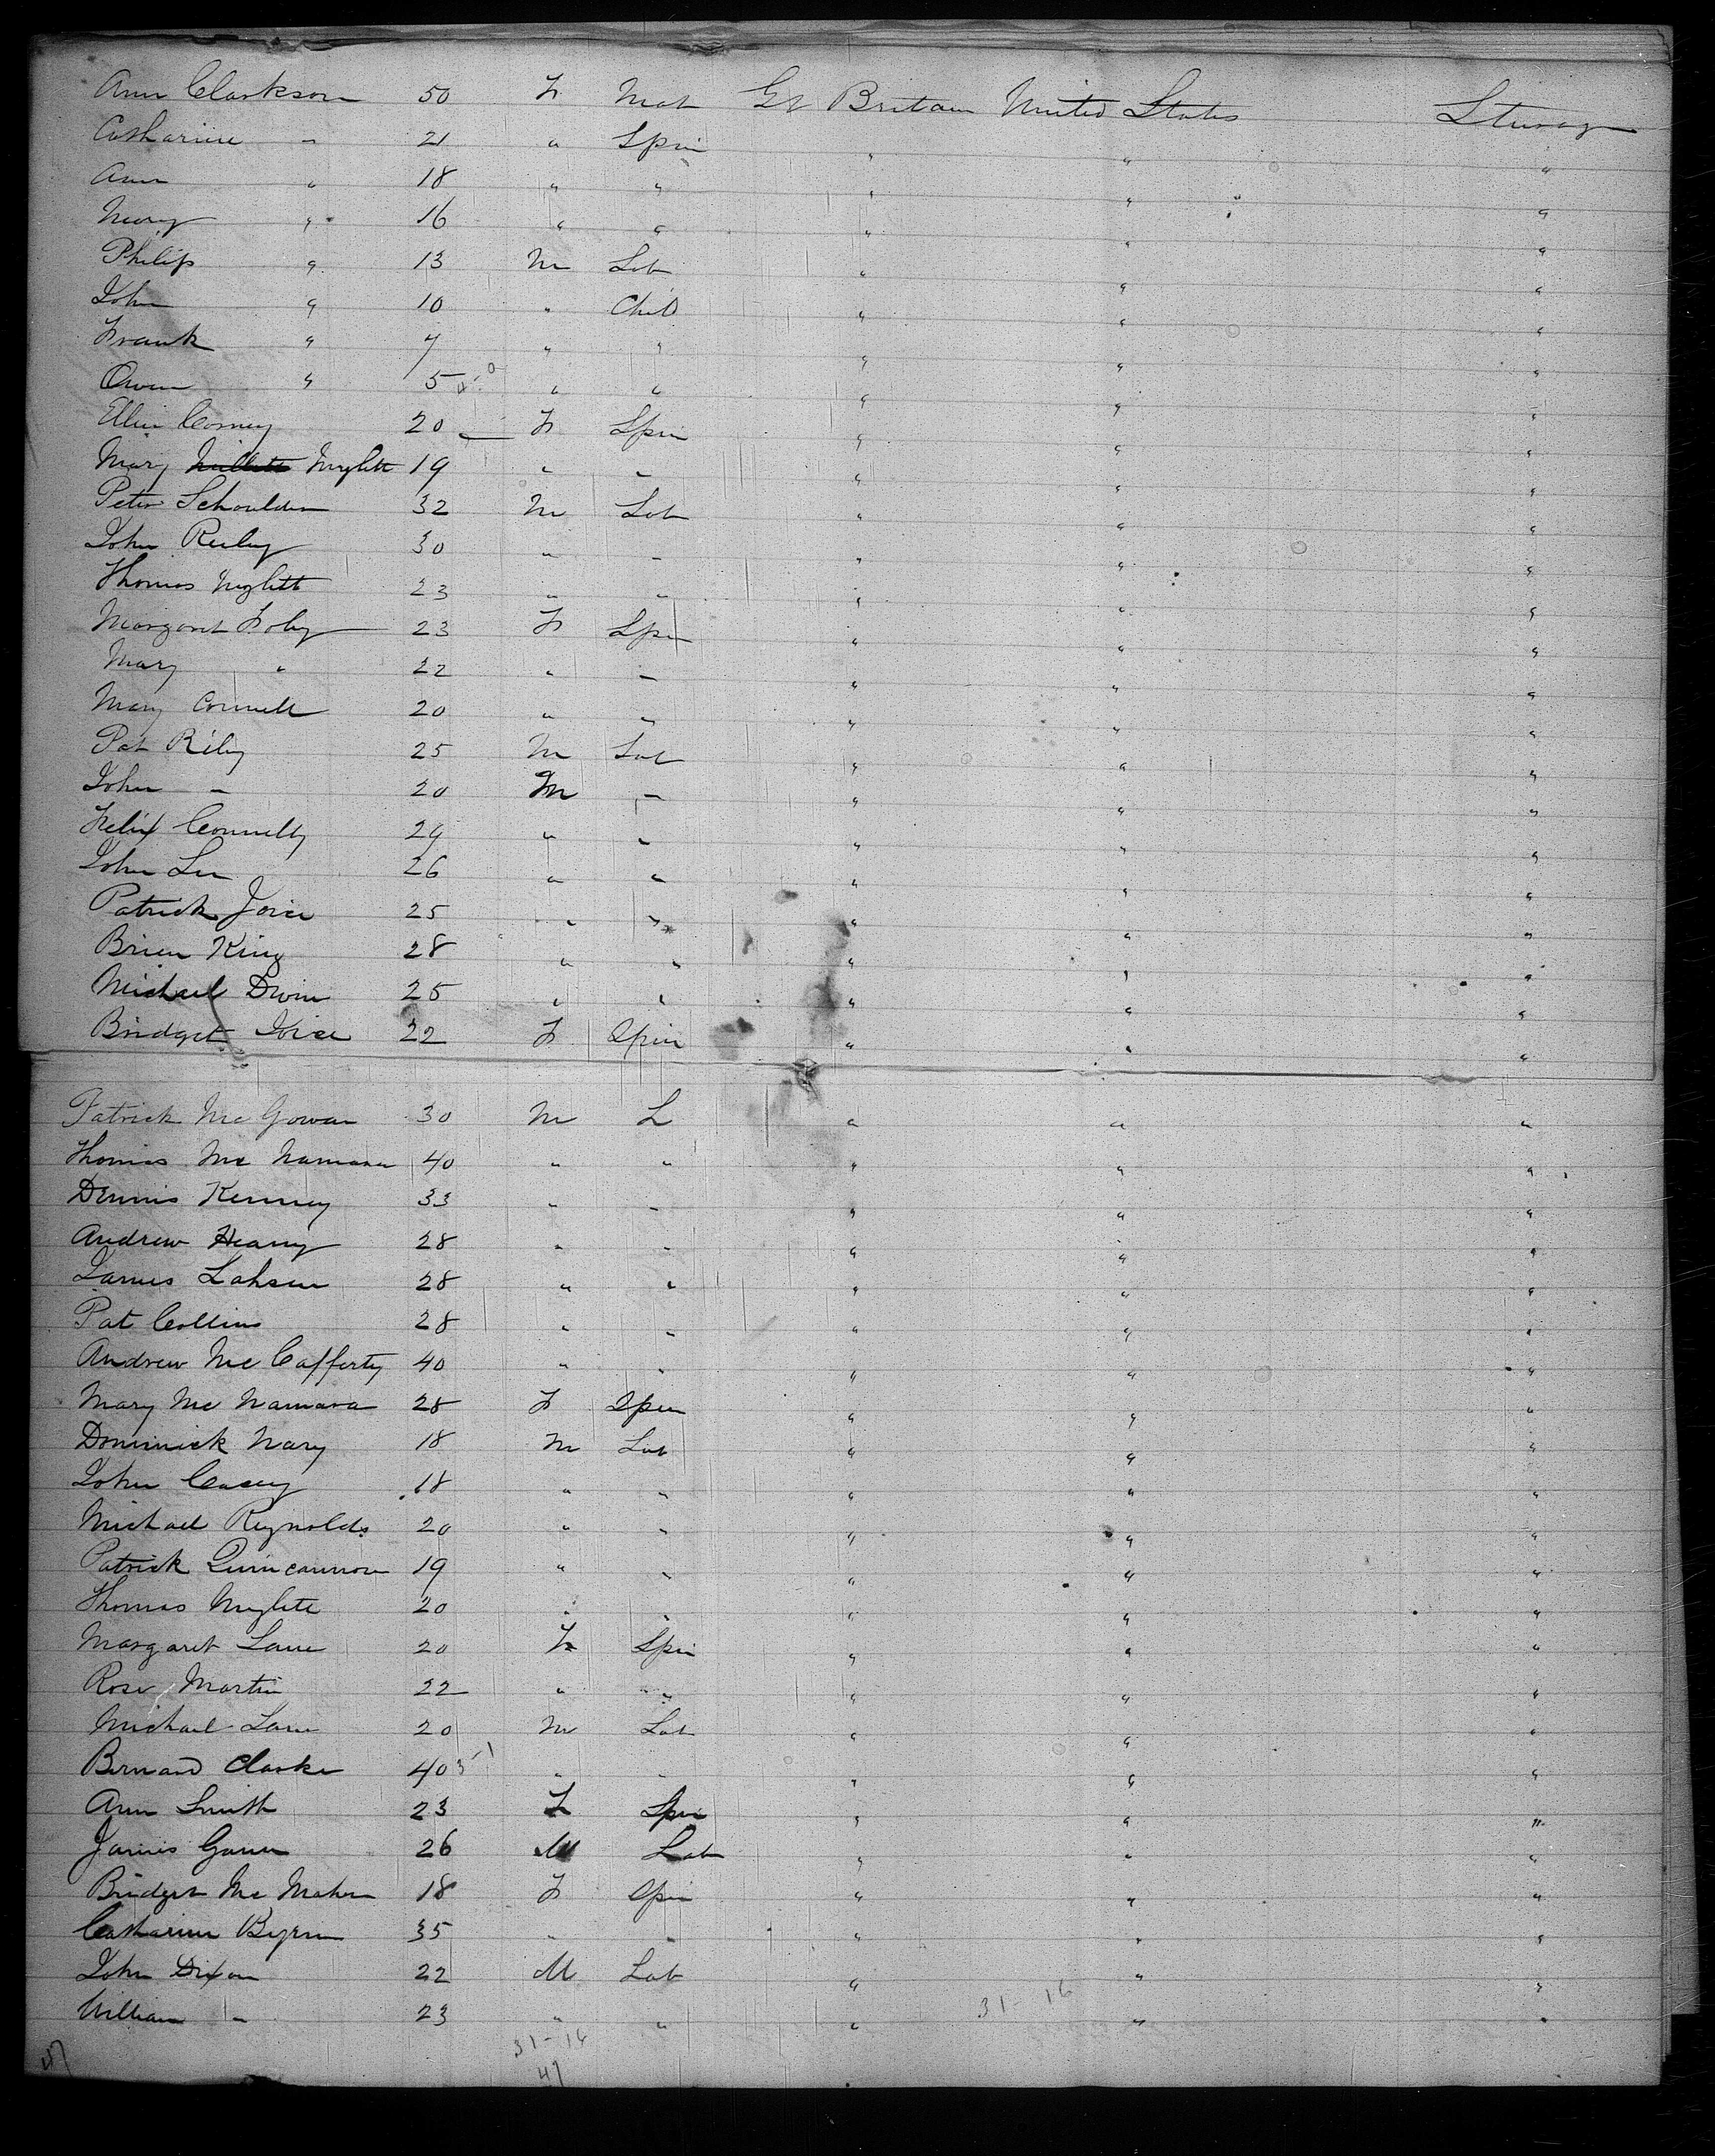 Ann Clarkson 50 F Mat Gt Britain United States Steerage
Catharine " 21 " Spin " " "
Ann " 18 " " " " "
Mary " 16 " " " " "
Philip " 13 M Lab " " "
John " 10 " Child " " "
Frank " 7 " " " " "
Owen " 5 " " " " "
Ellen Corney 20 F Spin " " "
Mary Mylett 19 " " " " "
Peter Schoulder 32 M Lab " " "
John Reiley 30 " " " " "
Thomas Mylett 23 " " " " "
Margaret Foley 23 F Spin " " "
Mary " 22 " " " " "
Mary Connell 20 " " " " "
Pat Riley 25 M Lab " " "
John " 20 M " " " "
Felix Connelly 29 " " " " "
John Lee 26 " " " " "
Patrick Joice 25 " " " " "
Brien King 28 " " " " "
Michael Divin 25 " " " " "
Bridget Joice 22 F Spin " " "
Patrick Mc Gowan 30 M L " " "
Thomas Mc Namara 40 " " " " "
Dennis Kenney 33 " " " " "
Andrew Heany 28 " " " " "
James Lahsen 28 " " " " "
Pat Collins 28 " " " " "
Andrew Mc Cafferty 40 " " " " "
Mary Mc Namara 28 F Spin " " "
Dominick Nary 18 M Lab " " "
John Casey 18 " " " " "
Michael Reynolds 20 " " " " "
Patrick Quincannon 19 " " " " "
Thomas Mylett 20 " " " " "
Margaret Lane 20 F Spin " " "
Rose Martin 22 " " " " "
Michael Lane 20 M Lab " " "
Bernard Clarke 40 " " " " "
Ann Smith 23 F Spin " " "
James Gannon 26 M Lab " " "
Bridget Mc Mahon 18 F Spin " " "
Catharine Byrne 35 " " " " "
John Dixon 22 M Lab " " "
William " 23 " " " " "
31-16
31-16
47
47